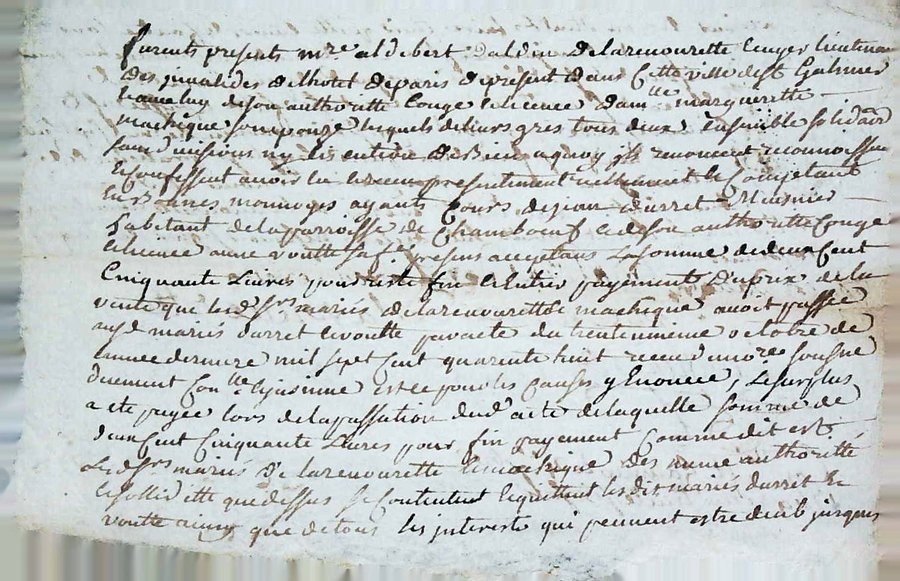 furents presents mre aldebert daldin delarenourette Ecuyer lieutenan
des jnvalides delhotel deparis depresent dans Cette ville de St Galmier
deson authoritte Conge Licence dam lle margueritte
machique son epouze lesquels deleurs gres tous deux Ensemble solidaire
sans divisions ny de bien aquoy jls renoncent reconnoisse
Confessent avoir eu Receu presentement reellement Comptant
En bonnes monnoyes ayants Cours dejean durret Meusnier
habitant delaparroisse de Chambœuf dedeson authoritte Conge
Licence anne voutte sa fe presens acceptans Lasomme dedeux Cent
Cinquante Livres pour reste fin Entier payement Duprix dela
vente que lesdts srs mariés delarenourette machique avoit passée
aux dt mariés durret voutte paracte du trentunnieme octobre de
lannee derniere mil sept Cent quarente huit receu unore sousne
duement Con lle jnsinué Estce pour les Causes y Enoncée, Lesurplus
a ete payée lors delapassation dud acte delaquelle somme de
deux Cent Cinquante Livres pour fin payement Comme dit est
Lesdt srs mariés de larenourette machique des meme authoritté
solliditté quedessus se Contentent quittent lesdits mariés durret
voutte ainsy que detous les jnterests qui peuvent estre deub jusques